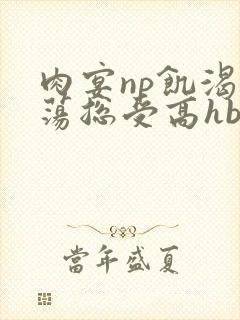 肉宴np飢渴
蕩総受高hb
當年盛夏